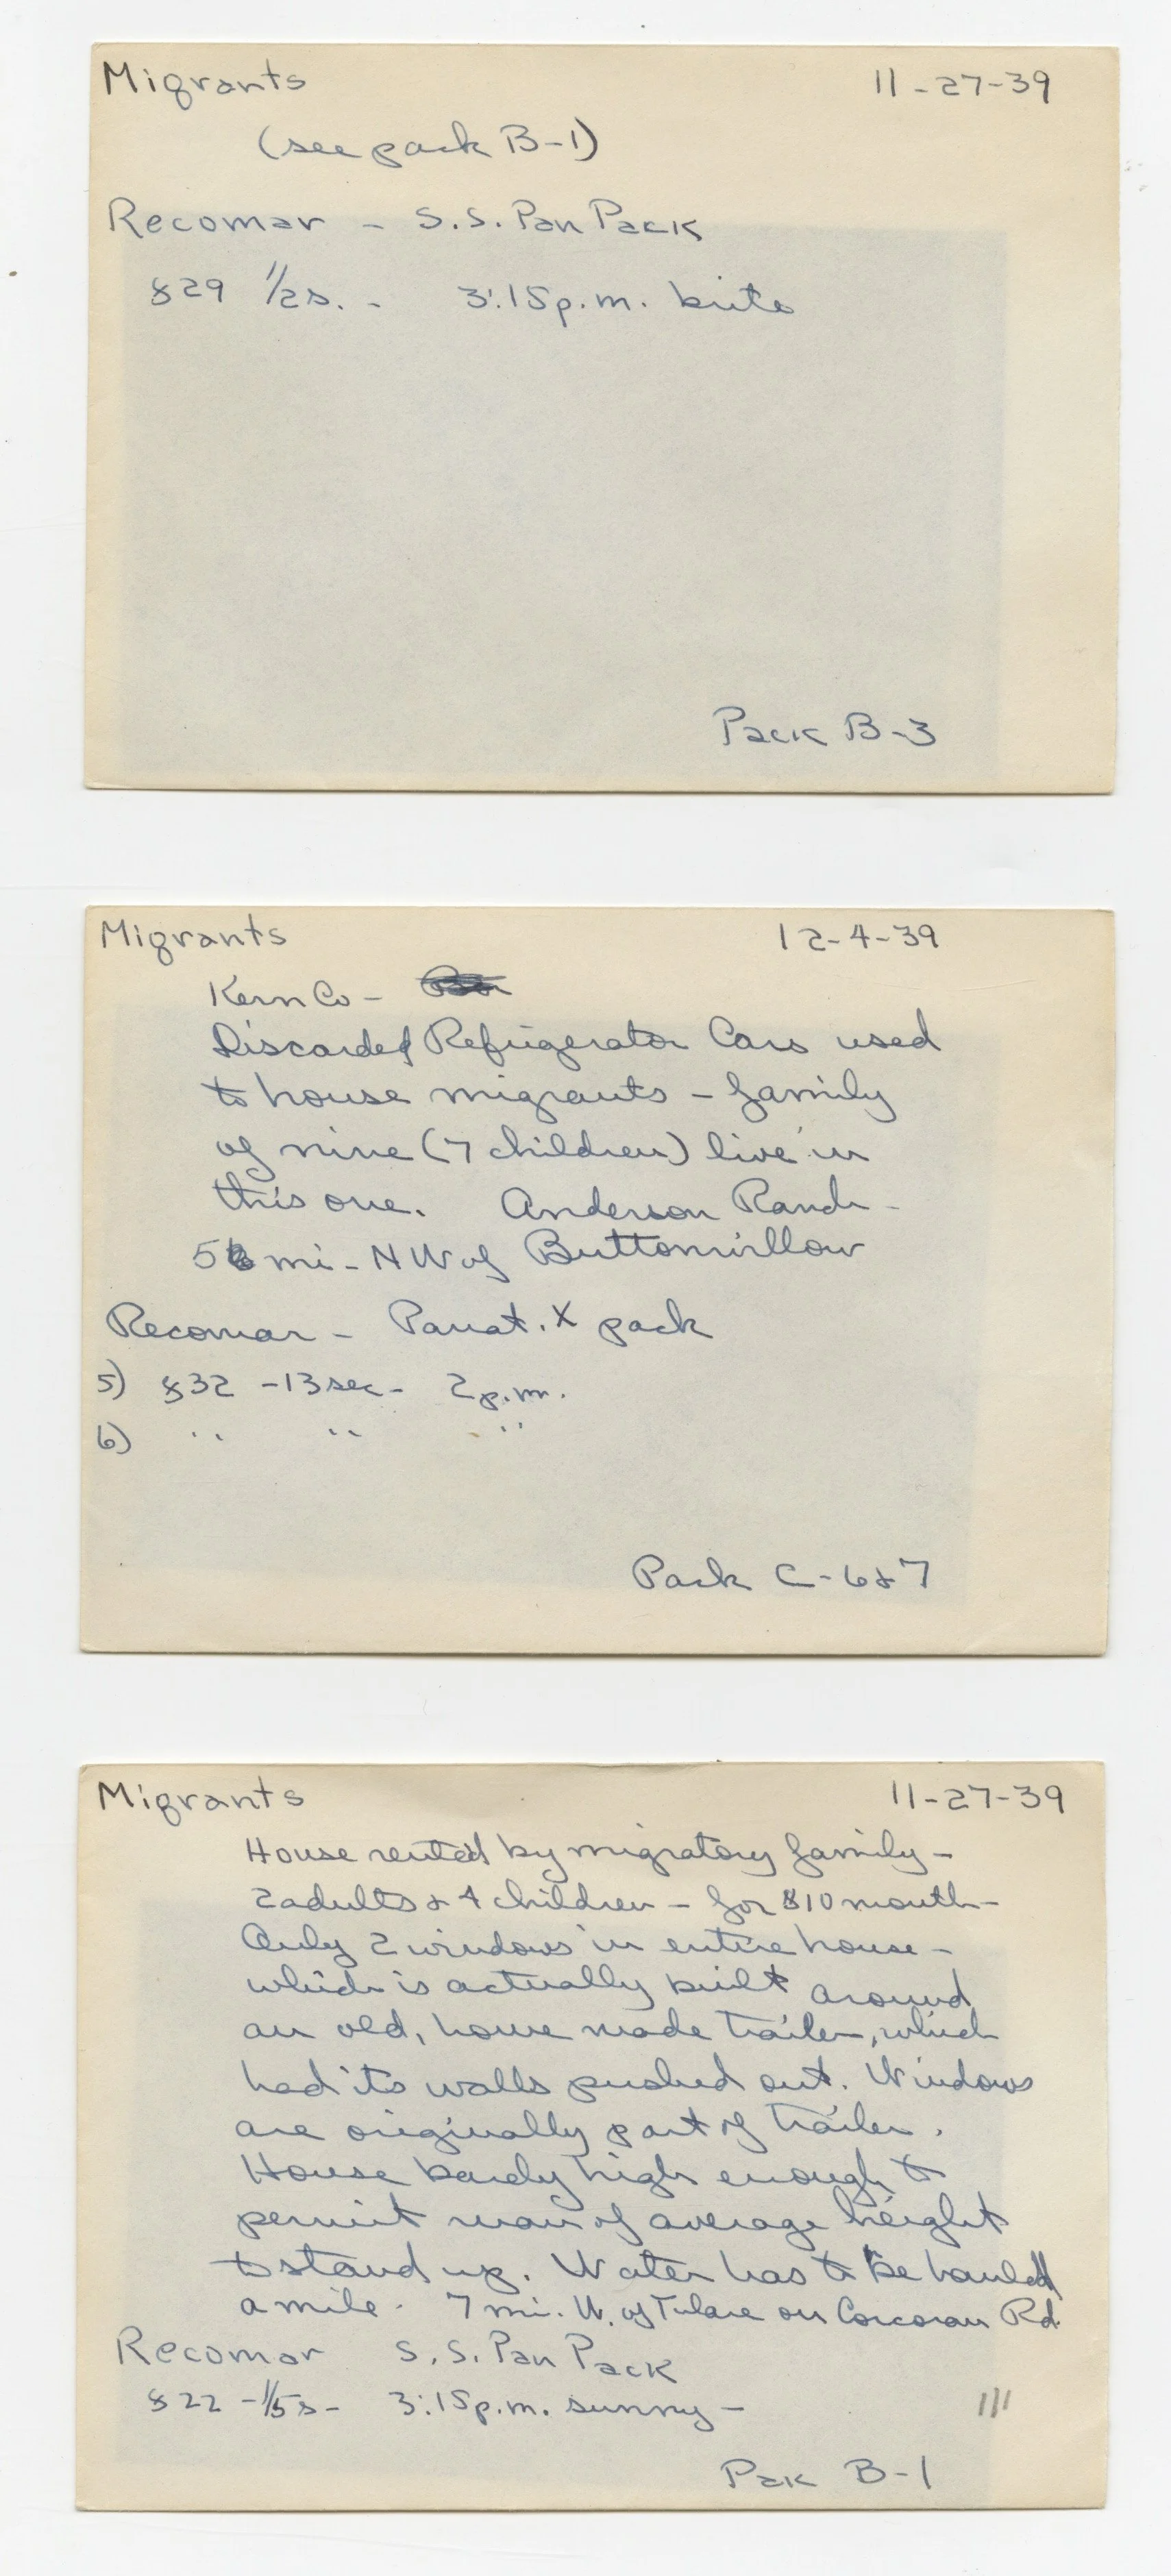 Migrants 11-27-39
(see pack B-1)
Recomar - S.S. Pan Pack
f29 1/2s. - 3:15p.m. brite
Pack B-3
Migrants 12-4-39
Kern Co -
Discarded Refrigerator Cars used
to house migrants - family
of nine (7 children) live in
this one. Anderson Ranch -
mi - NW of Buttonwillow
Recomar - Panat. X pack
5) f32 - 13sec - 2p.m.
6) " " "
Pack C-6&7
Migrants 11-27-39
House rented by migratory family -
2 adults & 4 children - for $10 month -
Only 2 windows in entire house -
which is actually built around
an old, home made trailer, which
had its walls pushed out. Windows
are originally part of trailer.
House barely high enough to
permit man of average height
to stand up. Water has to be hauled
a mile. 7 mi. W. of Tulare on Corcoran Rd.
Recomar S.S. Pan Pack
f22 - 1/5s - 3:15p.m. sunny -
Pak B-1